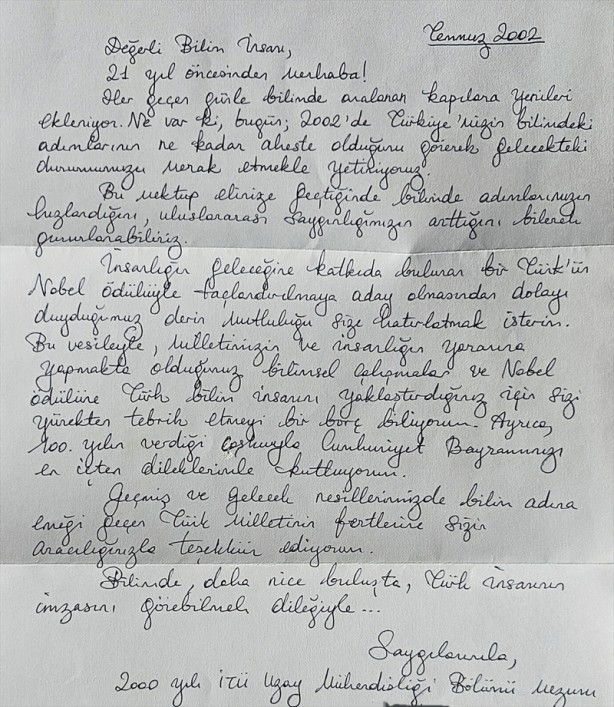 Temmuz 2002
Değerli Bilim İnsanı,
21 yıl öncesinden merhaba!
Her geçen günle bilimde aralanan kapılara yenileri
ekleniyor. Ne var ki, bugün; 2002'de Türkiye'mizin bilimdeki
adımlarının ne kadar aheste olduğunu görerek gelecekteki
durumumuzu merak etmekle yetiniyoruz.
Bu mektup elinize geçtiğinde bilimde adımlarımızın
hızlandığını, uluslararası saygınlığımızın arttığını bilerek
gururlanabiliriz.
İnsanlığın geleceğine katkıda bulunan bir Türk'ün
Nobel ödülüyle taçlandırılmaya aday olmasından dolayı
duyduğumuz derin mutluluğu size hatırlatmak isterim.
Bu vesileyle, milletimizin ve insanlığın yararına
yapmakta olduğunuz bilimsel çalışmalar ve Nobel
ödülüne Türk bilim insanını yaklaştırdığınız için sizi
yürekten tebrik etmeyi bir borç biliyorum. Ayrıca,
100. yılın verdiği coşkuyla Cumhuriyet Bayramınızı
en içten dileklerimle kutluyorum.
Geçmiş ve gelecek nesillerimizde bilim adına
emeği geçen Türk Milletinin fertlerine sizin
aracılığınızla teşekkür ediyorum.
Bilimde, daha nice buluşta, Türk insanının
imzasını görebilmek dileğiyle...
Saygılarımla,
2000 yılı İTÜ Uzay Mühendisliği Bölümü Mezunu